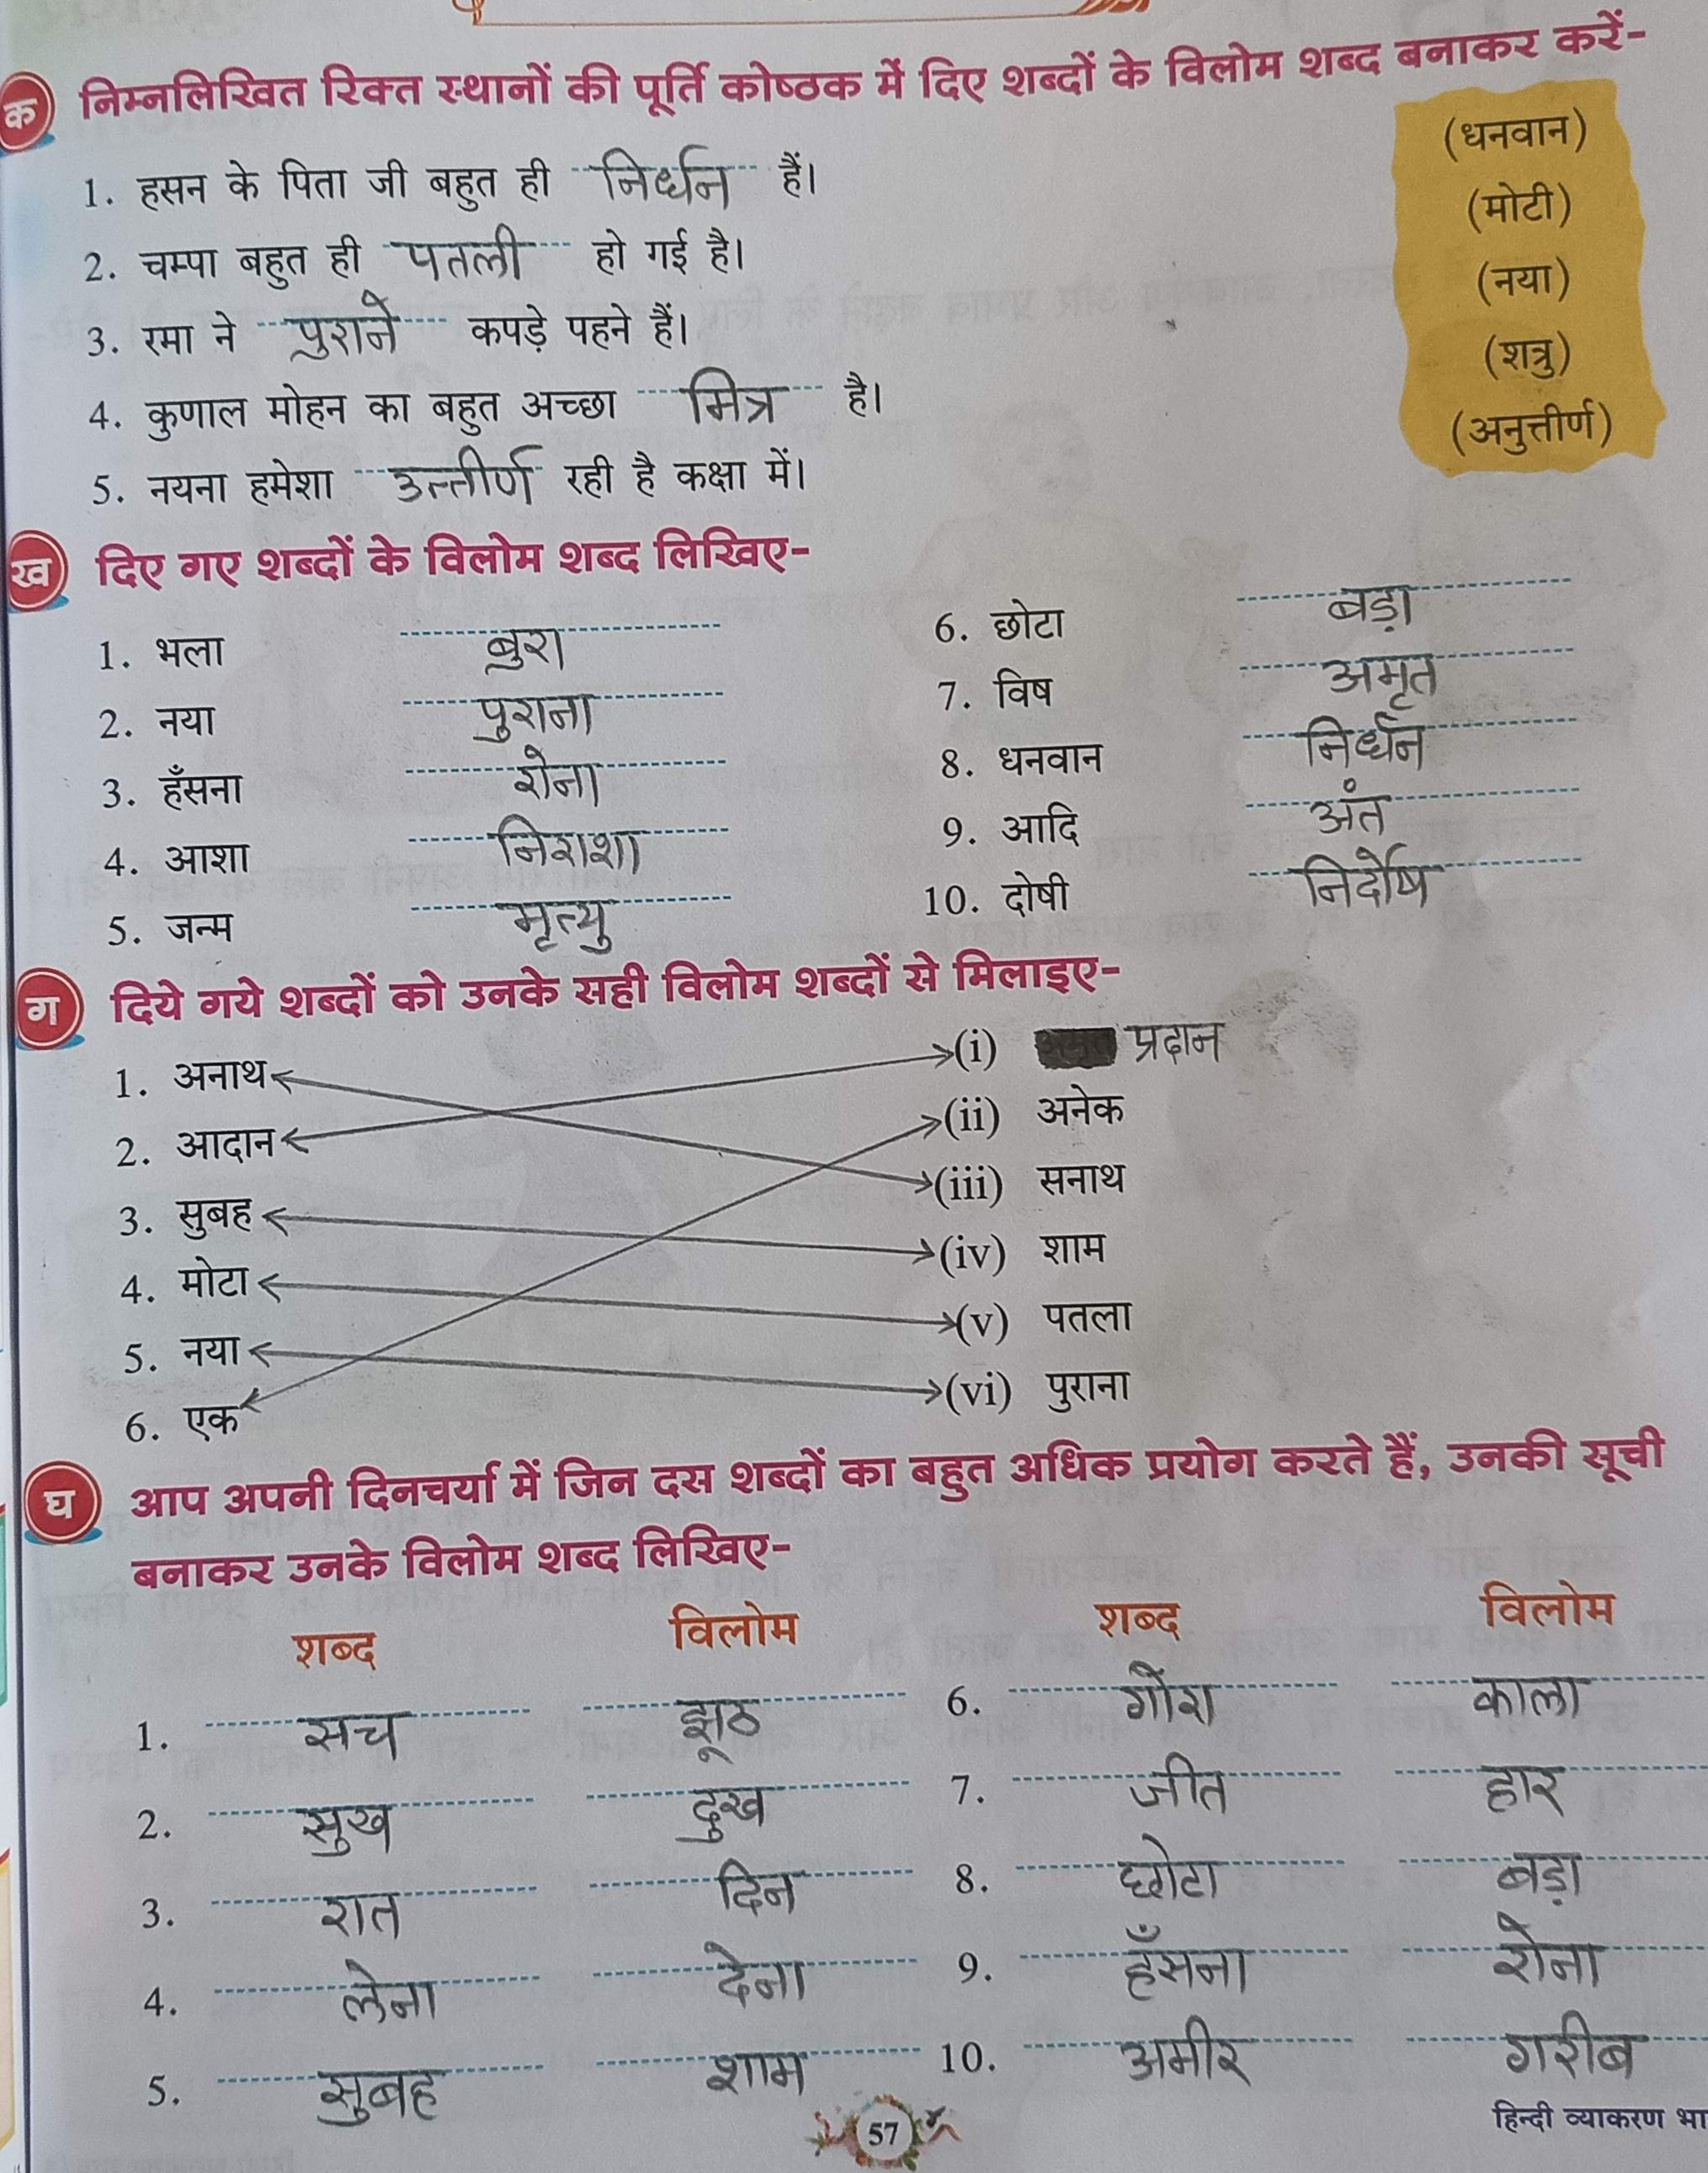 क निम्नलिखित रिक्त स्थानों की पूर्ति कोष्ठक में दिए शब्दों के विलोम शब्द बनाकर करें-
1. हसन के पिता जी बहुत ही निर्धन हैं। (धनवान)
2. चम्पा बहुत ही पतली हो गई है। (मोटी)
3. रमा ने पुराने कपड़े पहने हैं। (नया)
4. कुणाल मोहन का बहुत अच्छा मित्र है। (शत्रु)
5. नयना हमेशा उत्तीर्ण रही है कक्षा में। (अनुत्तीर्ण)
ख दिए गए शब्दों के विलोम शब्द लिखिए-
1. भला बुरा 6. छोटा बड़ा
2. नया पुराना 7. विष अमृत
3. हँसना रोना 8. धनवान निर्धन
4. आशा निराशा 9. आदि अंत
5. जन्म मृत्यु 10. दोषी निर्दोष
ग दिये गये शब्दों को उनके सही विलोम शब्दों से मिलाइए-
1. अनाथ (i) प्रदान
2. आदान (ii) अनेक
3. सुबह (iii) सनाथ
4. मोटा (iv) शाम
5. नया (v) पतला
6. एक (vi) पुराना
घ आप अपनी दिनचर्या में जिन दस शब्दों का बहुत अधिक प्रयोग करते हैं, उनकी सूची
बनाकर उनके विलोम शब्द लिखिए-
शब्द विलोम शब्द विलोम
1. सच झूठ 6. गोरा काला
2. सुख दुख 7. जीत हार
3. रात दिन 8. छोटा बड़ा
4. लेना देना 9. हँसना रोना
5. सुबह शाम 10. अमीर गरीब
57
हिन्दी व्याकरण भा